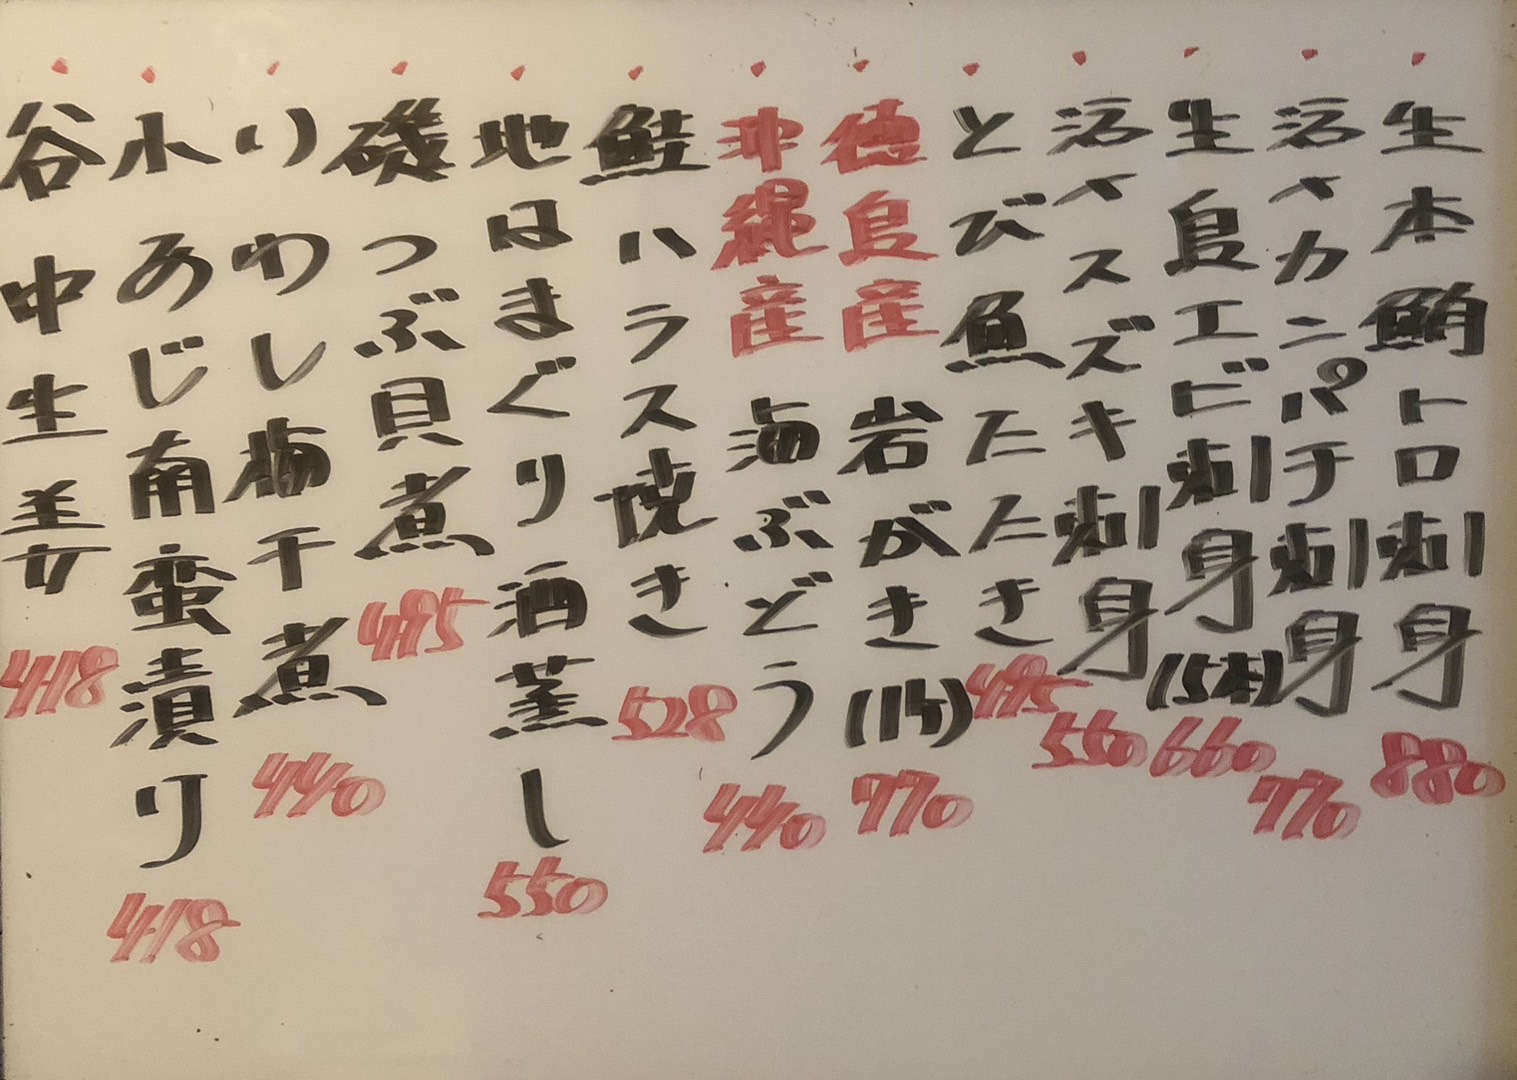 生本鮪トロ刺身 880
活〆カンパチ刺身 770
生島エビ刺身(5本) 660
活〆スズキ刺身 550
とび魚たたき 495
徳島産 岩がき(1ケ) 770
沖縄産 海ぶどう 440
鮭ハラス焼き 528
地はまぐり酒蒸し 550
磯つぶ貝煮 495
いわし梅干煮 440
小あじ南蛮漬り 418
谷中生姜 418